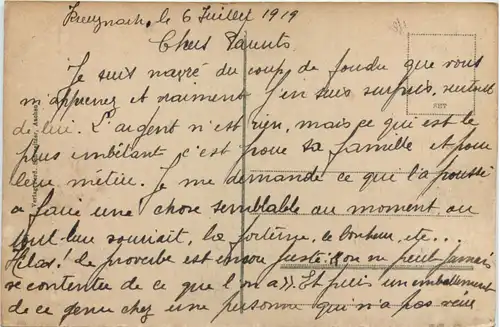 Kreuznach, le 6 Juillet 1919
Chers Parents
Je suis navré du coup de foudre que vous
m'apprenez et vraiment j'en suis surpris, surtout
de lui. L'argent n'est rien, mais ce qui est le
plus embêtant c'est pour sa famille et pour
leur métier. Je me demande ce que l'a poussé
a faire une chose semblable au moment où
tout lui souriait, la fortune, le bonheur, etc...
Hélas! le proverbe est encore juste: "on ne peut jamais
se contenter de ce que l'on a». Et puis un emballement
de ce genre chez une personne qui n'a pas